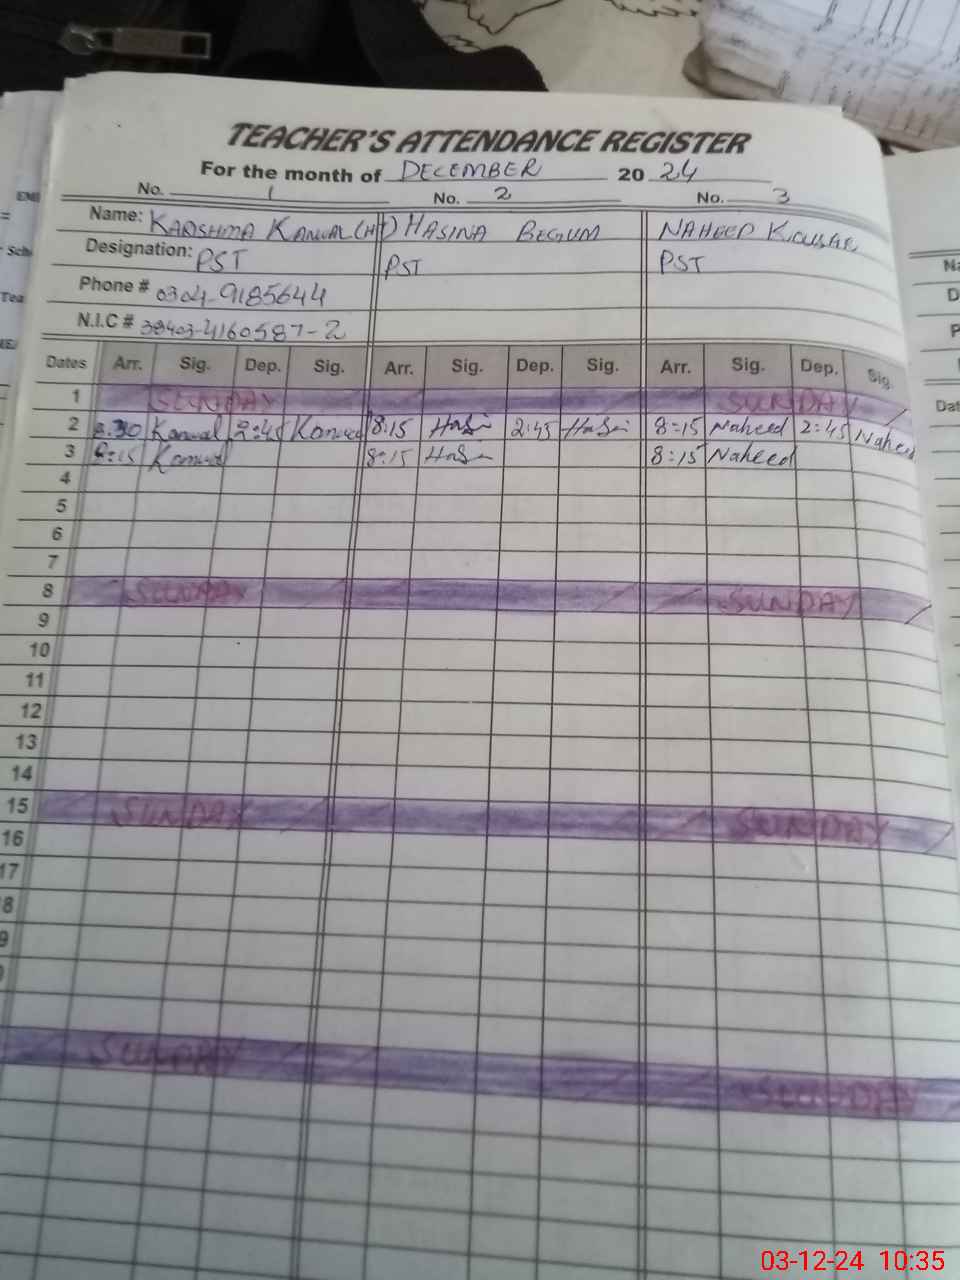 TEACHER'S ATTENDANCE REGISTER
For the month of DECEMBER 2024
No. 1 No. 2 No. 3
Name: KARSHMA KANWAL (HT) HASINA BEGUM NAHEED KOUSAR
Designation: PST PST PST
Phone # 0304-9185644
N.I.C # 38403-4160587-2
Dates Arr. Sig. Dep. Sig. Arr. Sig. Dep. Sig. Arr. Sig. Dep. Sig.
1 SUNDAY SUNDAY
2 8:30 Kanwal 2:45 Kanwal 8:15 Hasi 2:45 Hasi 8:15 Naheed 2:45 Naheed
3 8:15 Kanwal 8:15 Hasi 8:15 Naheed
4
5
6
7
8 SUNDAY SUNDAY
9
10
11
12
13
14
15 SUNDAY SUNDAY
16
17
8
9
SUNDAY SUNDAY
03-12-24 10:35